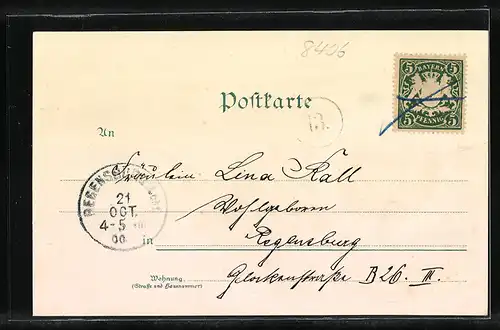 8406
5 BAYERN 5
5 PFENNIG 5
Postkarte
13.
An
Fräulein Lina Kall
REGENSBURG
21
OCT.
4-5
00
Wohlgeboren
in Regensburg
Wohnung
(Straße und Hausnummer)
Glockenstraße B 26. III.